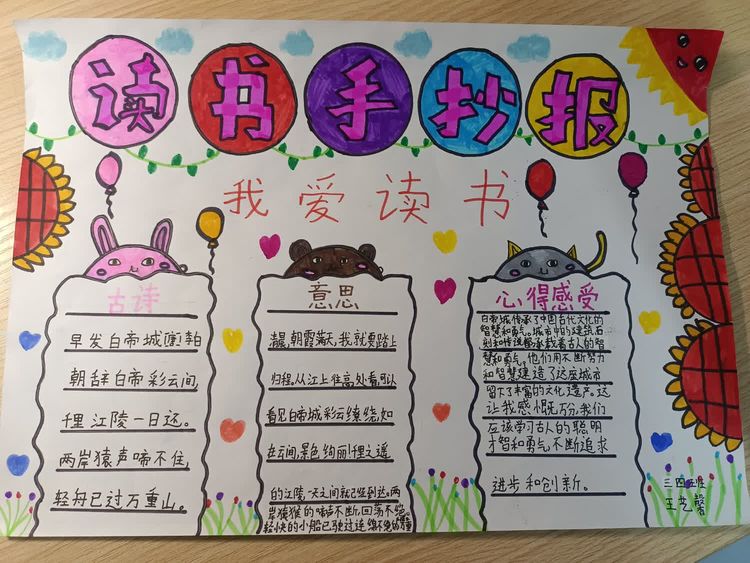 读书手抄报
我爱读书
古诗
早发白帝城
朝辞白帝彩云间,
千里江陵一日还。
两岸猿声啼不住,
轻舟已过万重山。
意思
清晨,朝霞满天,我就要踏上
归程。从江上往高处看,可以
看见白帝城彩云缭绕,如
在云间,景色绚丽!千里之遥
的江陵,一天之间就已经到达。两
岸猿猴的啼声不断,回荡不绝。
轻快的小船已驶过连绵不绝的
心得感受
白帝城传承了中国古代文化的
智慧和勇气。城市中的建筑、石
刻和传说都承载着古人的智
慧和勇气,他们用不断努力
和智慧建造了这座城市
留下了丰富的文化遗产。这
让我感慨万分,我们
应该学习古人的聪明
才智和勇气,不断追求
进步和创新。
三四班
王艺馨